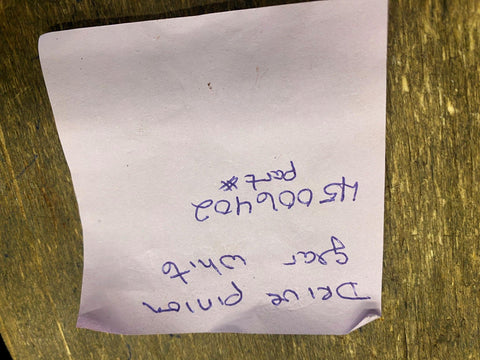 Drive pinion
gear white
45006402
part #